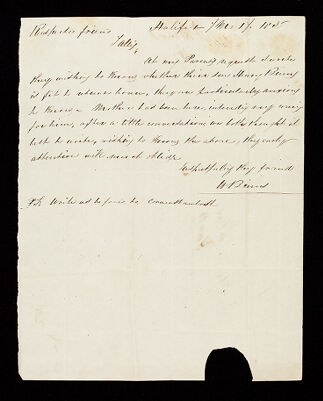 Respected friend Halifax 7 Mo 17 1845
Tatly,
At our Parents request I write
they wishing to know whether their son Henry Binns
is fit to return home, they are particularly anxious
to know a Mother had been here intending
for him, after a little conversation we both thought it
best to write, wishing to know the above, thy early
attention will much oblige
respectfully thy friend
W Binns
P.S. Write as before to